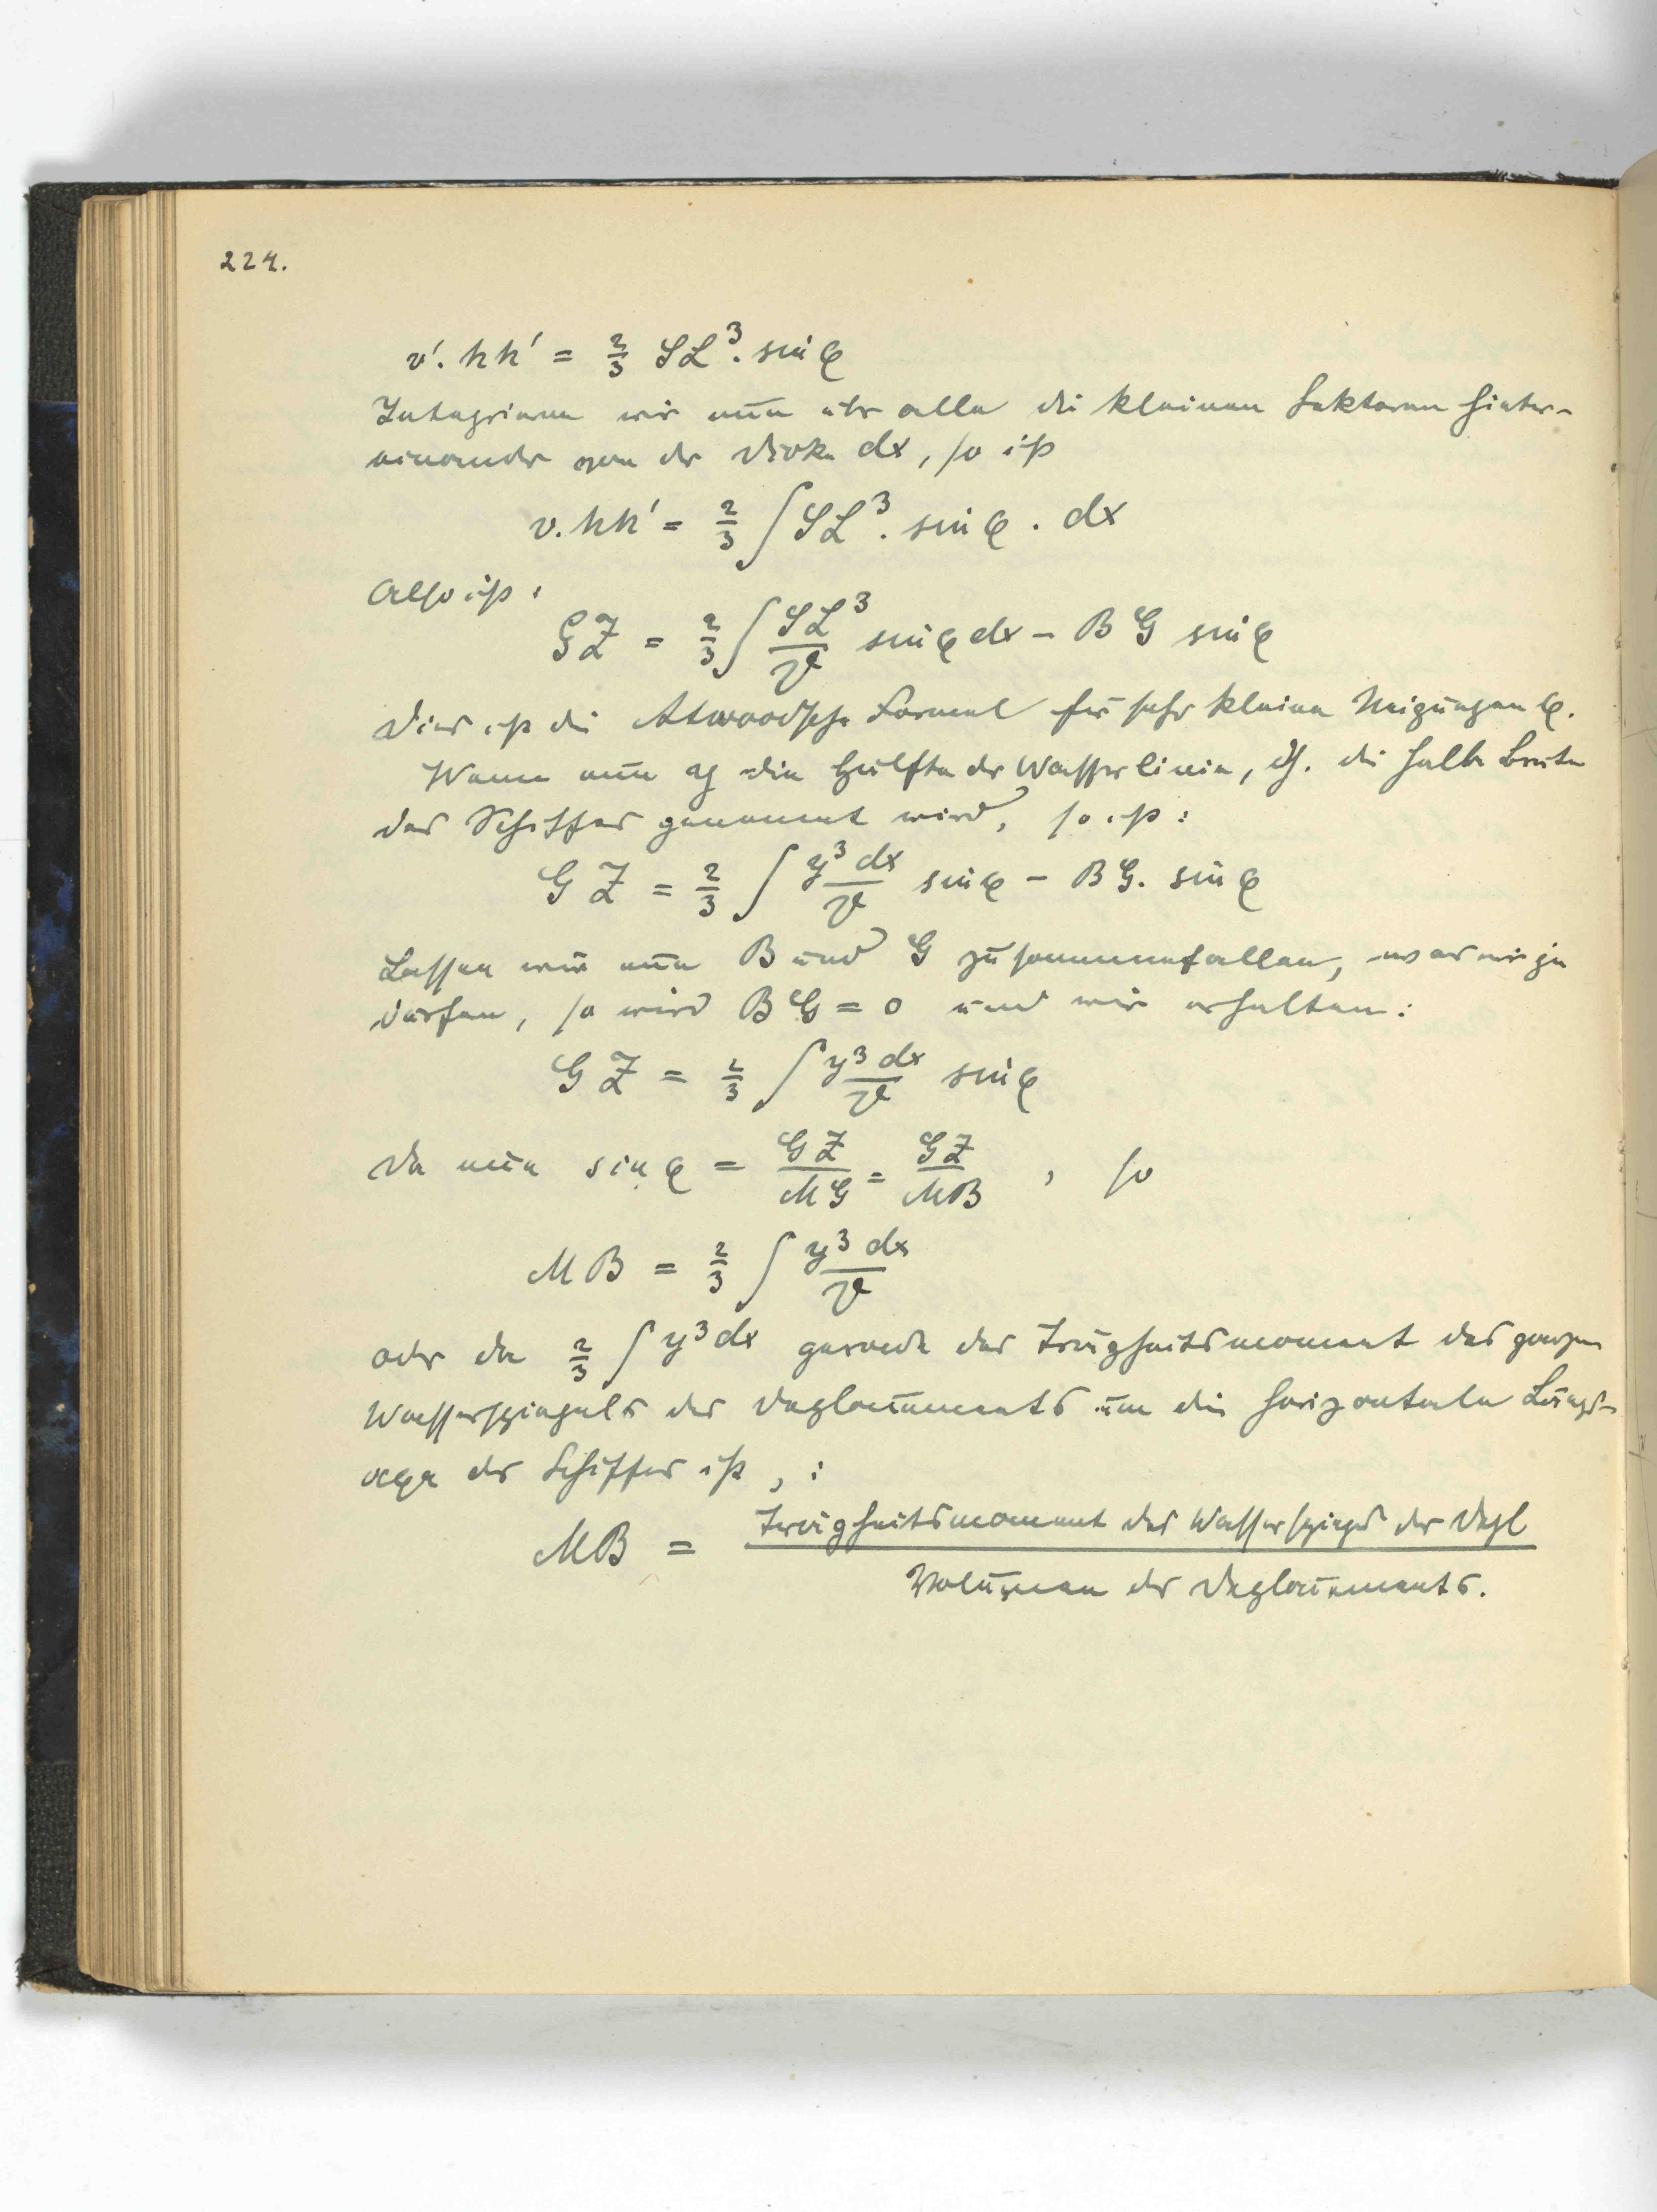 224.
v'. hh' = 2/3 SL³. sin φ
Integrieren wir nun über alle die kleinen Sektoren hinter-
einander von der Dicke dx, so ist
v. hh' = 2/3 ∫ SL³. sin φ . dx
Also ist:
GZ = 2/3 ∫ SL³/V sin φ dx - BG sin φ
Dies ist die Atwoodsche Formel für sehr kleine Neigungen φ.
Wenn nun y die Hälfte der Wasserlinie, dh. die halbe Breite
des Schiffes genannt wird, so ist:
GZ = 2/3 ∫ y³ dx/V sin φ - BG. sin φ
Lassen wir nun B und G zusammenfallen, was wir ja
dürfen, so wird BG = 0 und wir erhalten:
GZ = 2/3 ∫ y³ dx/V sin φ
Da nun sin φ = GZ/MG = GZ/MB , so
MB = 2/3 ∫ y³ dx/V
oder da 2/3 ∫ y³ dx gerade das Trägheitsmoment des ganzen
Wasserspiegels des Deplacements um die horizontale Längs-
axe des Schiffes ist, :
MB = Trägheitsmoment des Wasserspiegels des Depl
Volumen des Deplacements.